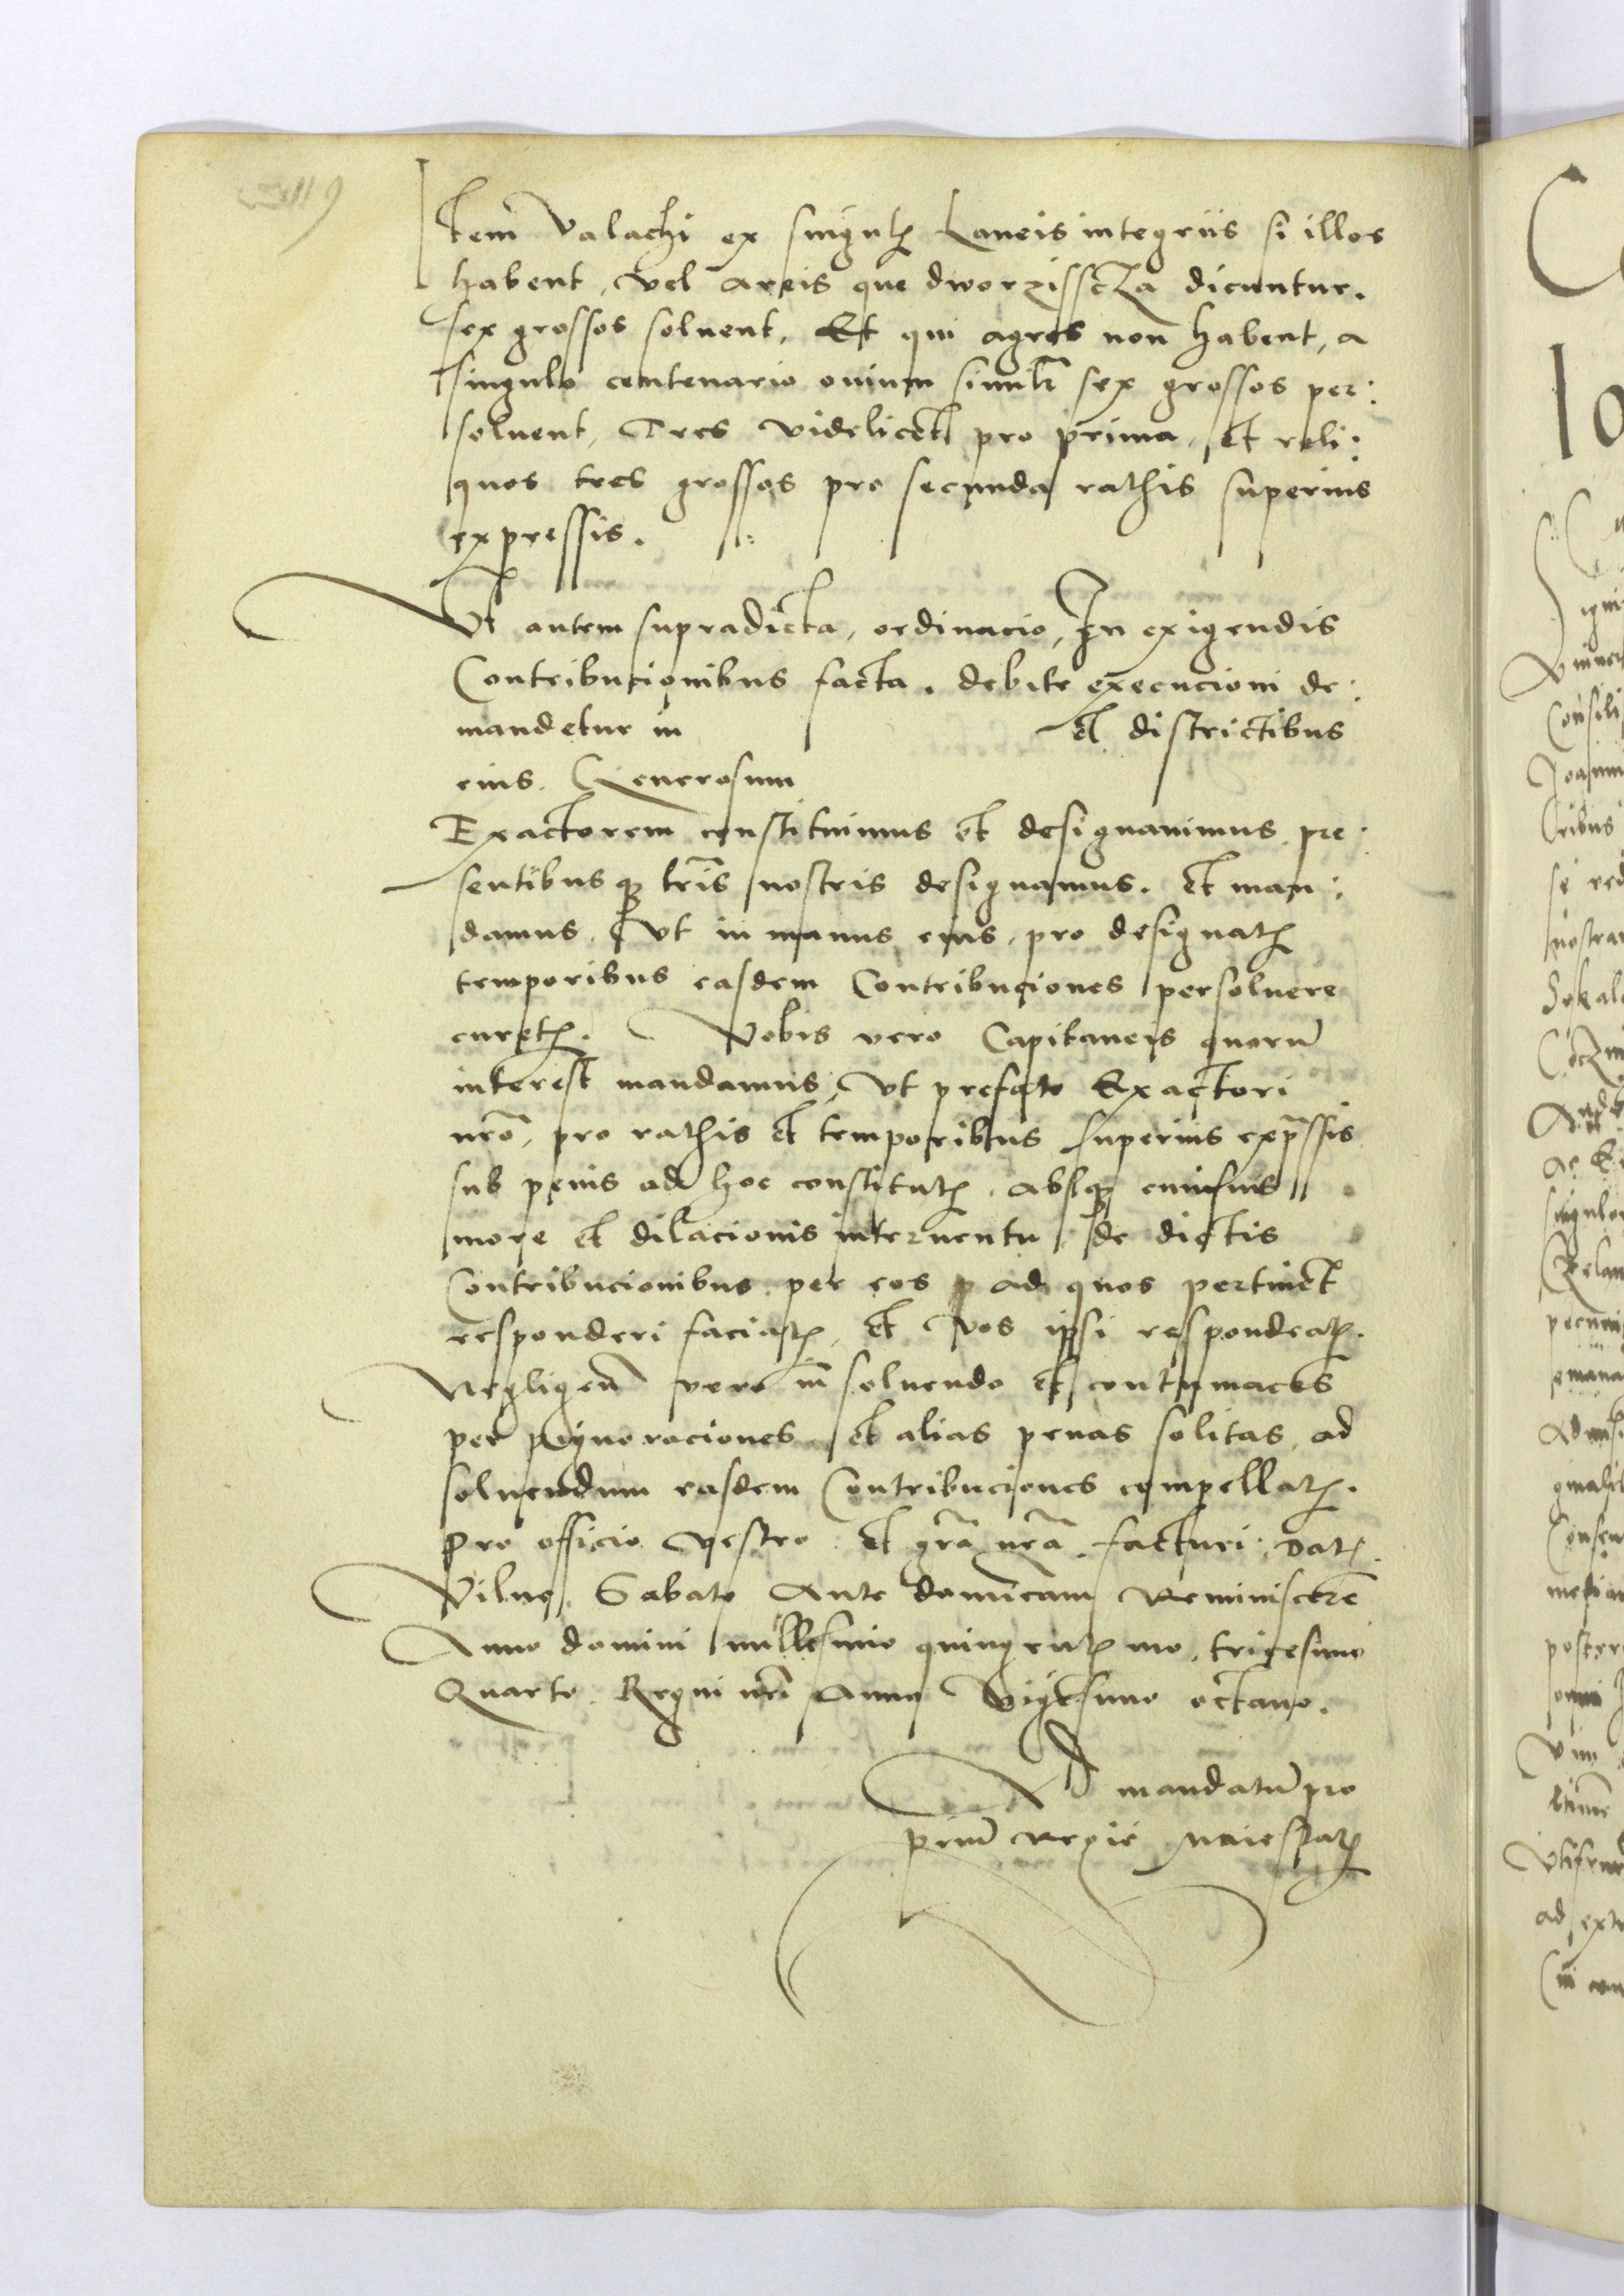 Item Valachi ex singulꝭ Laneis integriis si illos
habent, vel areis que dworzisscza dicuntur.
sex grossos soluent, Et qui agros non habent, a
singulo centenario ouium similr̄ sex grossos per:
soluent, Tres videlicet pro prima, et reli:
quos tres grossos pro secunda rathis superius
expressis.
Vt autem supradicta, ordinacio, In exigendis
Contribucionibus facta, debite execucioni de:
mandetur in et districtibus
eius. Generosum
Exactorem constituimus et designauimus, pre:
sentibusqꝫ lr̄is nostris designamus. Et man:
damus, Vt in manus eius, pro designatꝭ
temporibus easdem Contribuciones persoluere
curetꝭ. Vobis vero Capitaneis quorū
interest mandamus, Vt prefato Exactori
nrō, pro rathis et temporibus superius exp̄ssis
sub penis ad hoc constitutꝭ, absqꝫ cuiusuis
more et dilacionis interuentu, de dictis
Contribucionibus per eos p ad quos pertinet
responderi faciatꝭ, et vos ipsi respondeatꝭ.
Negligen̄ vero in soluendo et contumaces
per pignoraciones et alias penas solitas, ad
soluendum easdem Contribuciones compellatꝭ.
pro officio vestro et gr̄a nr̄a facturi. Datꝭ
Vilne, Sabato Ante domīcam Reminiscere
Anno domini millesimo quingentꝭmo, tricesimo
Quarto. Regni nrī Anno Vigesimo octauo.
Ad mandatū pro
priū Regie Maiestatꝭ